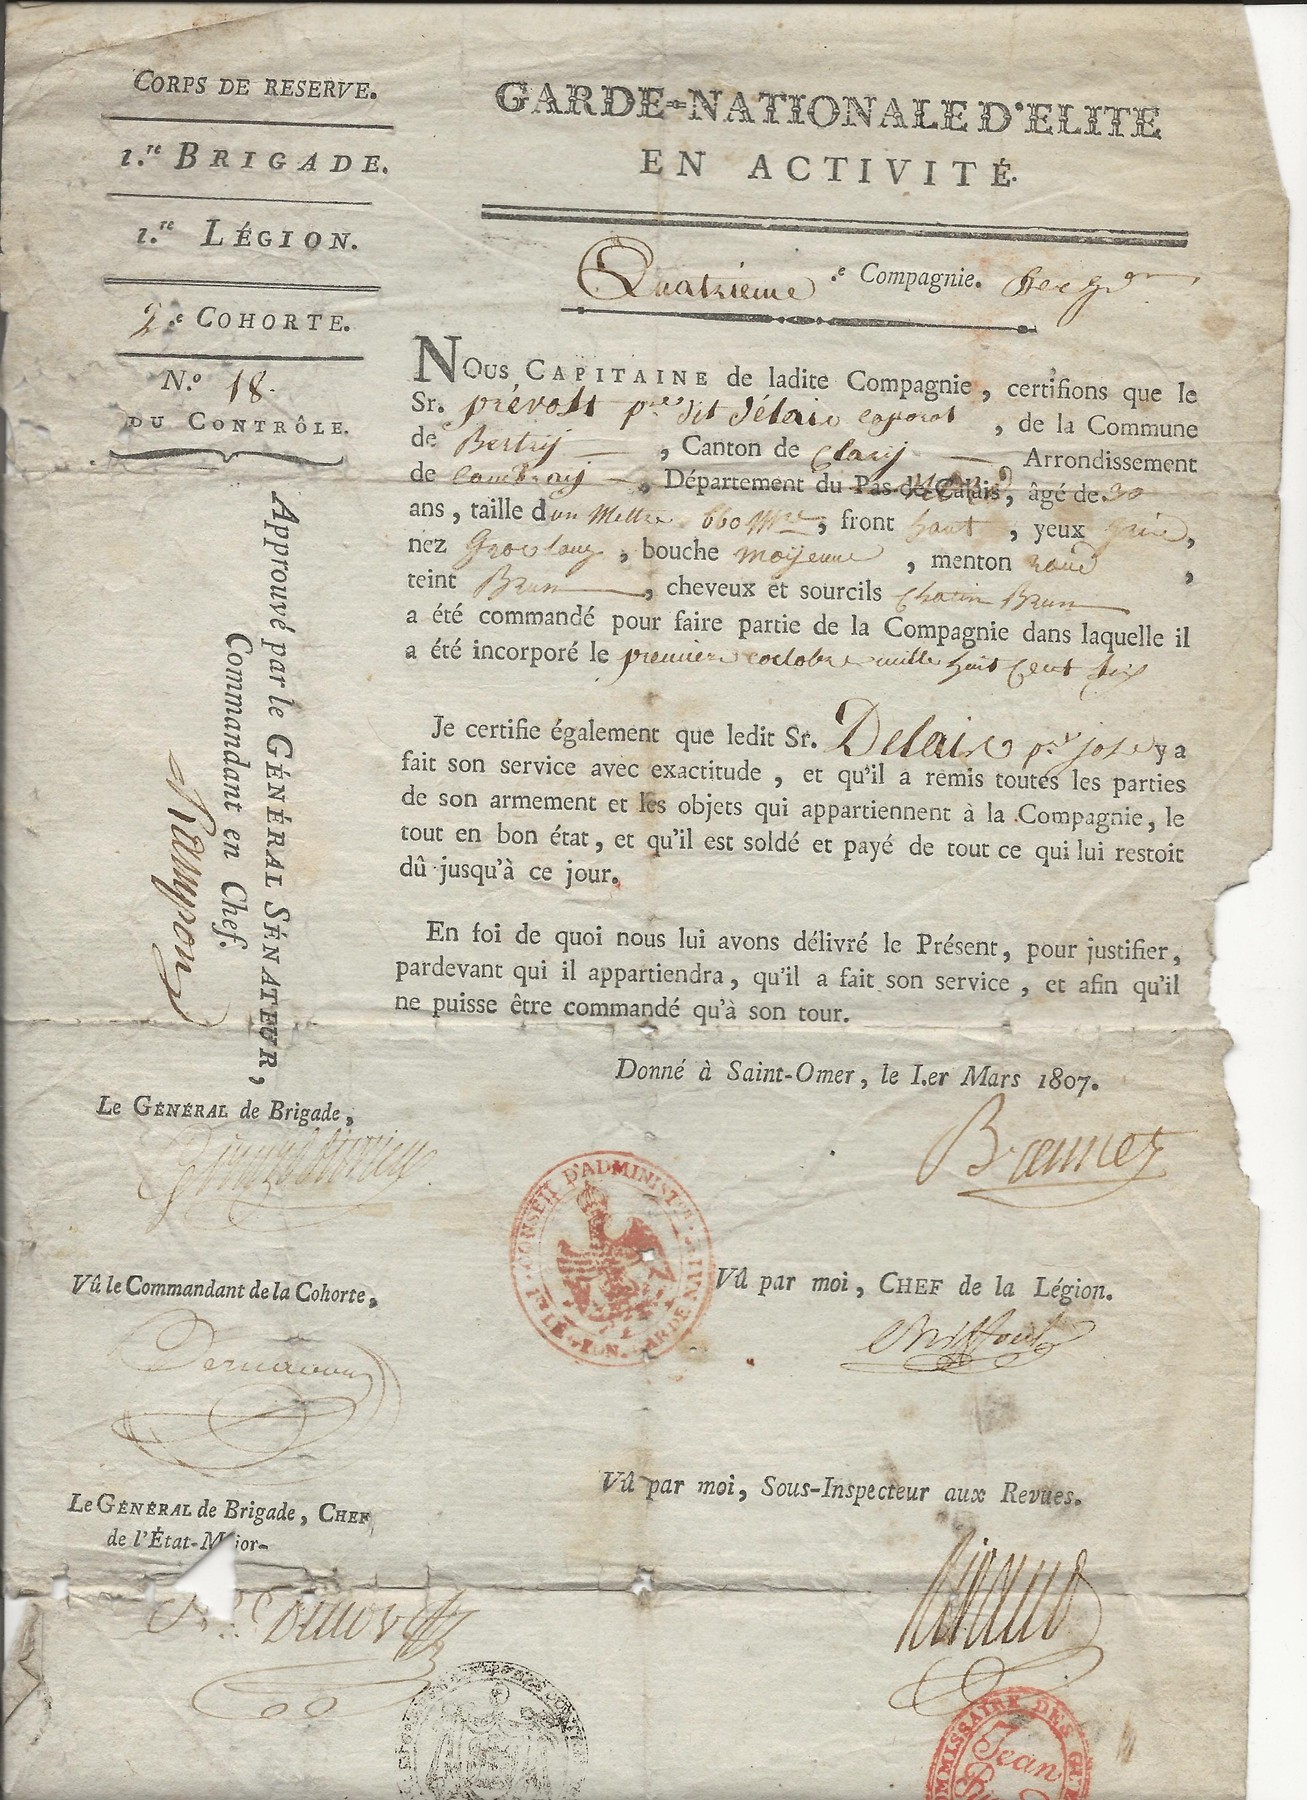 CORPS DE RESERVE.
1.re BRIGADE.
1.re LÉGION.
2.e COHORTE.
N.o 18.
DU CONTRÔLE.
GARDE-NATIONALE D'ELITE
EN ACTIVITÉ.
Quatrieme .e Compagnie.
NOUS CAPITAINE de ladite Compagnie, certifions que le
Sr. prévost pre dit Délair caporal, de la Commune
de Bertry, Canton de Clary Arrondissement
de Cambray, Département du Pas-de-Calais, âgé de 30
ans, taille d'un Mettre 660 Mre, front haut, yeux gris,
nez Gros long, bouche moyenne, menton rond,
teint Brun, cheveux et sourcils Chatin Brun
a été commandé pour faire partie de la Compagnie dans laquelle il
a été incorporé le premier octobre mille huit Cent six
Je certifie également que ledit Sr. Delair pre jos y a
fait son service avec exactitude, et qu'il a remis toutes les parties
de son armement et les objets qui appartiennent à la Compagnie, le
tout en bon état, et qu'il est soldé et payé de tout ce qui lui restoit
dû jusqu'à ce jour.
En foi de quoi nous lui avons délivré le Présent, pour justifier,
pardevant qui il appartiendra, qu'il a fait son service, et afin qu'il
ne puisse être commandé qu'à son tour.
Donné à Saint-Omer, le 1.er Mars 1807.
Approuvé par le GÉNÉRAL SÉNATEUR,
Commandant en Chef.
Rampon
Le GÉNÉRAL de Brigade,
CONSEIL D'ADMINIST
1re LÉGION. GARDE NATIVE
Vû le Commandant de la Cohorte,
Vû par moi, CHEF de la Légion.
Le GÉNÉRAL de Brigade, CHEF
de l'État-Major
Vû par moi, Sous-Inspecteur aux Revues.
COMMISSAIRE DES GUE
Jean